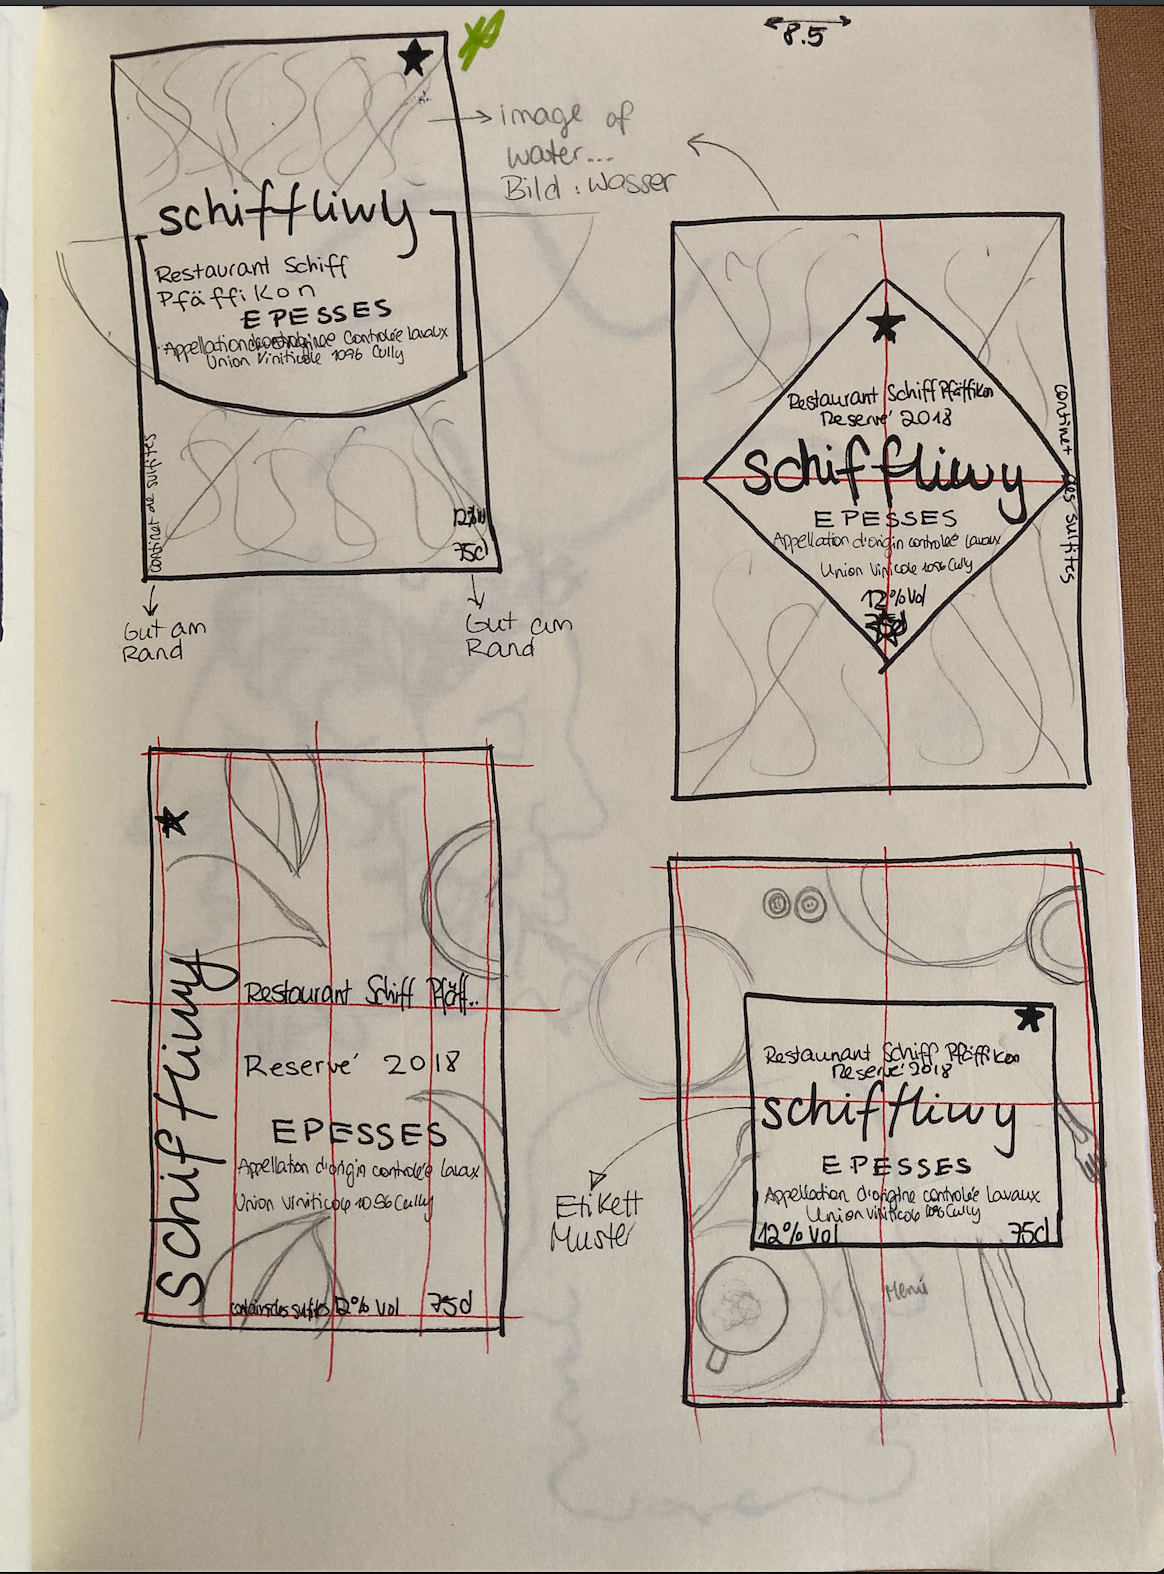 8.5
image of
water...
Bild: Wasser
schiffliwy
Restaurant Schiff
Pfäffikon
EPESSES
Appellation Controlée Lavaux
Union Viniticole 1096 Cully
continet de sulfites
12%
75cl
Gut am
Rand
Gut am
Rand
Restaurant Schiff Pfäffikon
Reservé 2018
schiffliwy
EPESSES
Appellation d'origin controleé Lavaux
Union Vinicole 1096 Cully
12% Vol
continet des sulfites
schiffliwy
Restaurant Schiff Pfäff..
Reservé 2018
EPESSES
Appellation d'origin controleé Lavaux
Union Viniticole 1096 Cully
contains des sulfites 12% Vol 75cl
Restaurant Schiff Pfäffikon
Reservé 2018
schiffliwy
EPESSES
Appellation d'origine controleé Lavaux
Union viniticole 1096 Cully
12% Vol 75cl
Etikett
Muster
Menü